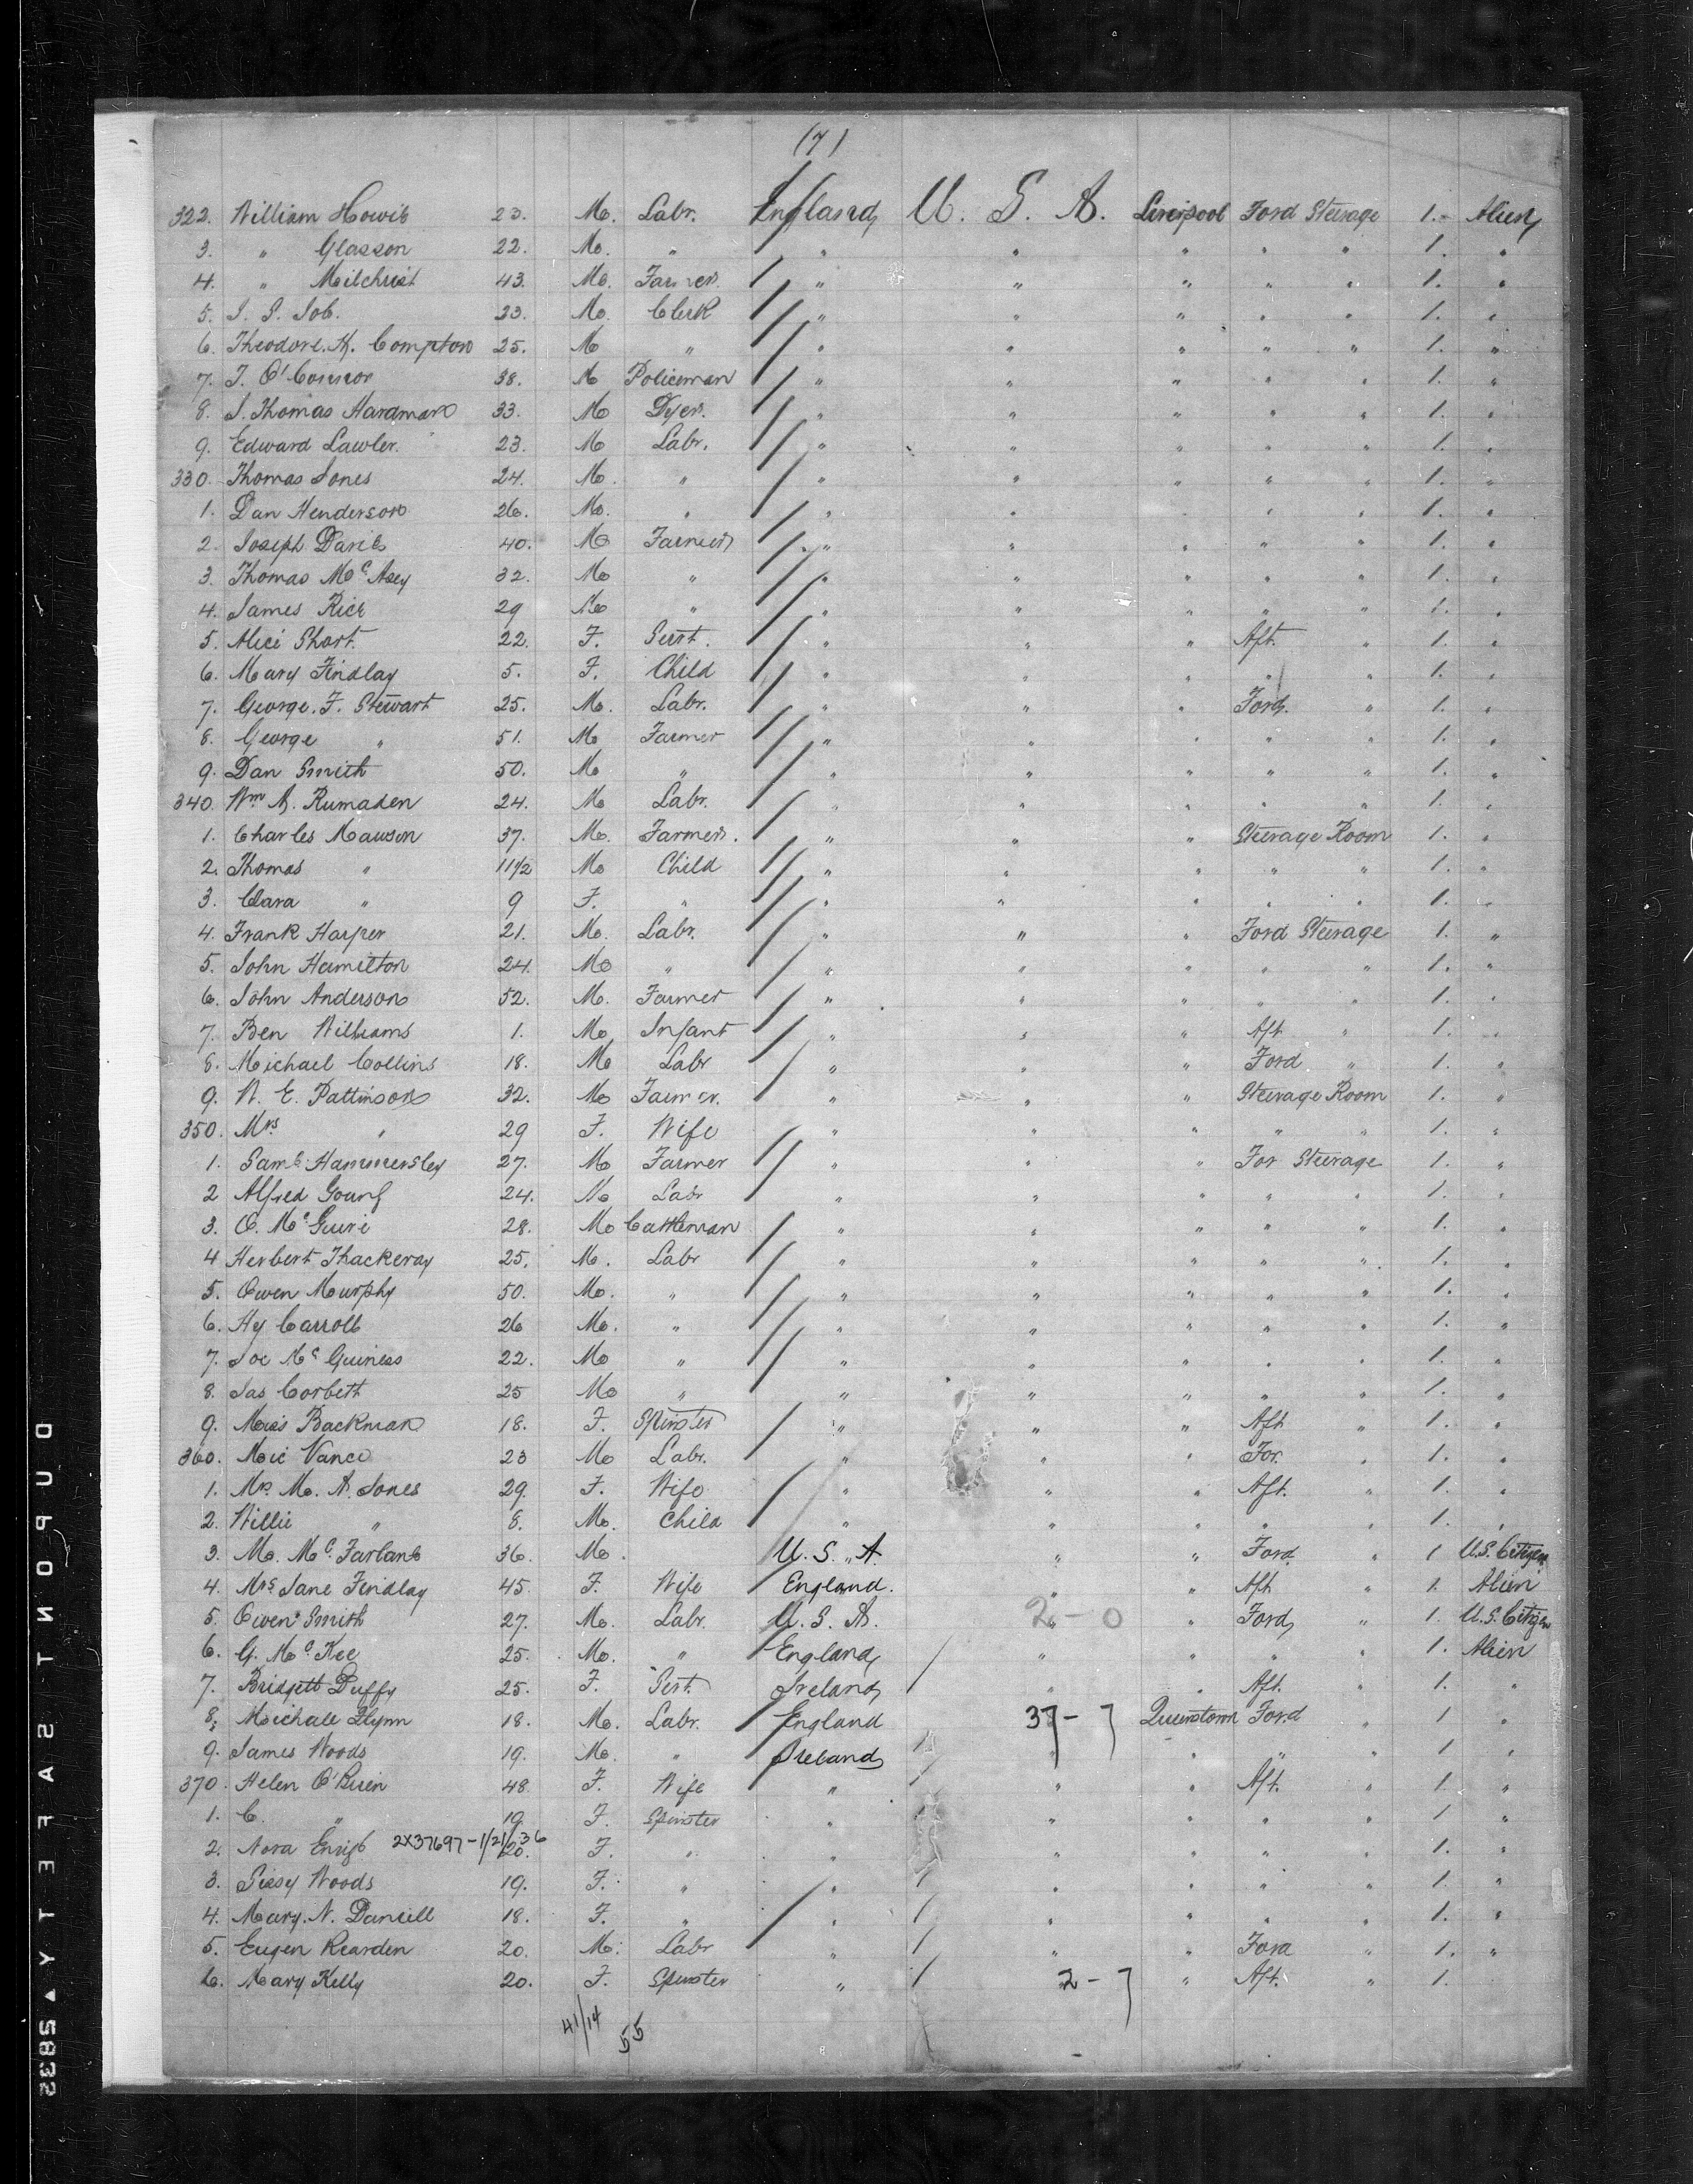 (7)
322. William Howie 23. M. Labr. England U. S. A. Liverpool Ford Steerage 1. Alien
3. " Glasson 22. M. " " " " " " 1. "
4. " Milchrist 43. M. Farmer. " " " " " 1. "
5. J. J. Job. 23. M. Clerk " " " " " 1. "
6. Theodore. H. Compton 25. M " " " " " " 1. "
7. T. O'Connor 38. M Policeman " " " " " 1. "
8. J. Thomas Hardman 33. M Dyer. " " " " " 1. "
9. Edward Lawler. 23. M Labr. " " " " " 1. "
330. Thomas Jones 24. M. " " " " " " 1. "
1. Dan Henderson 26. M. " " " " " " 1. "
2. Joseph Davies 40. M Farmer " " " " " 1. "
3. Thomas Mc Asey 32. M " " " " " " 1. "
4. James Rice 29 M " " " " " " 1. "
5. Alice Short. 22. F. Servt. " " " Aft. " 1. "
6. Mary Findlay 5. F. Child " " " " " 1. "
7. George. F. Stewart 25. M. Labr. " " " Ford. " 1. "
8. George " 51. M Farmer " " " " " 1. "
9. Dan Smith 50. M " " " " " " 1. "
340. Wm A. Rumaden 24. M Labr. " " " " " 1. "
1. Charles Mawson 37. M. Farmer. " " " Steerage Room 1. "
2. Thomas " 11 1/2 M Child " " " " " 1. "
3. Clara " 9 F. " " " " " " 1. "
4. Frank Harper 21. M. Labr. " " " Ford Steerage 1. "
5. John Hamilton 24. M " " " " " " 1. "
6. John Anderson 52. M. Farmer " " " " " 1. "
7. Ben Williams 1. M Infant " " " Aft " 1. "
8. Michael Collins 18. M Labr " " " Ford " 1. "
9. W. E. Pattinson 32. M Farmer. " " " Steerage Room 1. "
350. Mrs " 29 F. Wife " " " " " 1. "
1. Saml. Hammersley 27. M Farmer " " " For Steerage 1. "
2 Alfred Young 24. M Labr " " " " " 1. "
3. O. Mc Guire 28. M Cattleman " " " " " 1. "
4 Herbert Thackeray 25. M. Labr " " " " " 1. "
5. Owen Murphy 50. M. " " " " " " 1. "
6. Hy Carroll 26 M. " " " " " " 1. "
7. Joe Mc Guiness 22. M " " " " " " 1. "
8. Jas Corbett 25 M " " " " " " 1. "
9. Miss Backman 18. F. Spinster " " " Aft " 1. "
360. Mic Vance 23 M Labr. " " " For. " 1. "
1. Mrs. M. A. Jones 29. F. Wife " " " Aft. " 1. "
2. Willie " 8. M. Child " " " " " 1. "
3. M. Mc. Farland 36. M. U. S. A. " " Ford. " 1 U.S. Citizen
4. Mrs Jane Findlay 45. F. Wife England. " " Aft " 1. Alien
5. Owen Smith 27. M. Labr. U. S. A. 2 - 0 " Ford " 1. U.S. Citizen
6. G. Mc. Kee 25. M. " England " " " " 1. Alien
7. Bridgett Duffy 25. F. Servt. Ireland " " Aft. " 1. "
8. Michall Flynn 18. M. Labr. England 37 - 7 Queenstown Ford " 1 "
9. James Woods 19. M. " Ireland " " " " 1 "
370. Helen O'Brien 48. F. Wife " " " Aft. " 1. "
1. C. " 19. F. Spinster " " " " " 1 "
2. Nora 2X37697-1/21/36 20. F. " " " " " " 1. "
3. Sissy Woods 19. F. " " " " " " 1. "
4. Mary. N. 18. F. " " " " " " 1. "
5. Eugen Rearden 20. M. Labr " " " Ford " 1. "
6. Mary Kelly 20. F. Spinster " 2 - 7 " Aft. " 1.
41/14 55
DUPONT SAFETY ▲ 5832